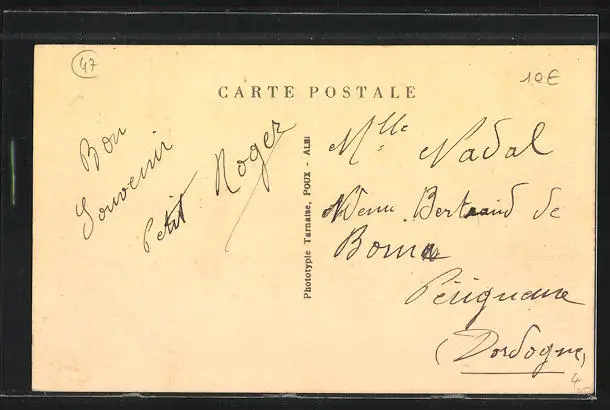 47
10E
CARTE POSTALE
Bon
Souvenir
Petit Roger
Phototypie Tarnaise, POUX - ALBI
Mlle Nadal
Bertrand de
Born
Périgueux
(Dordogne)
4